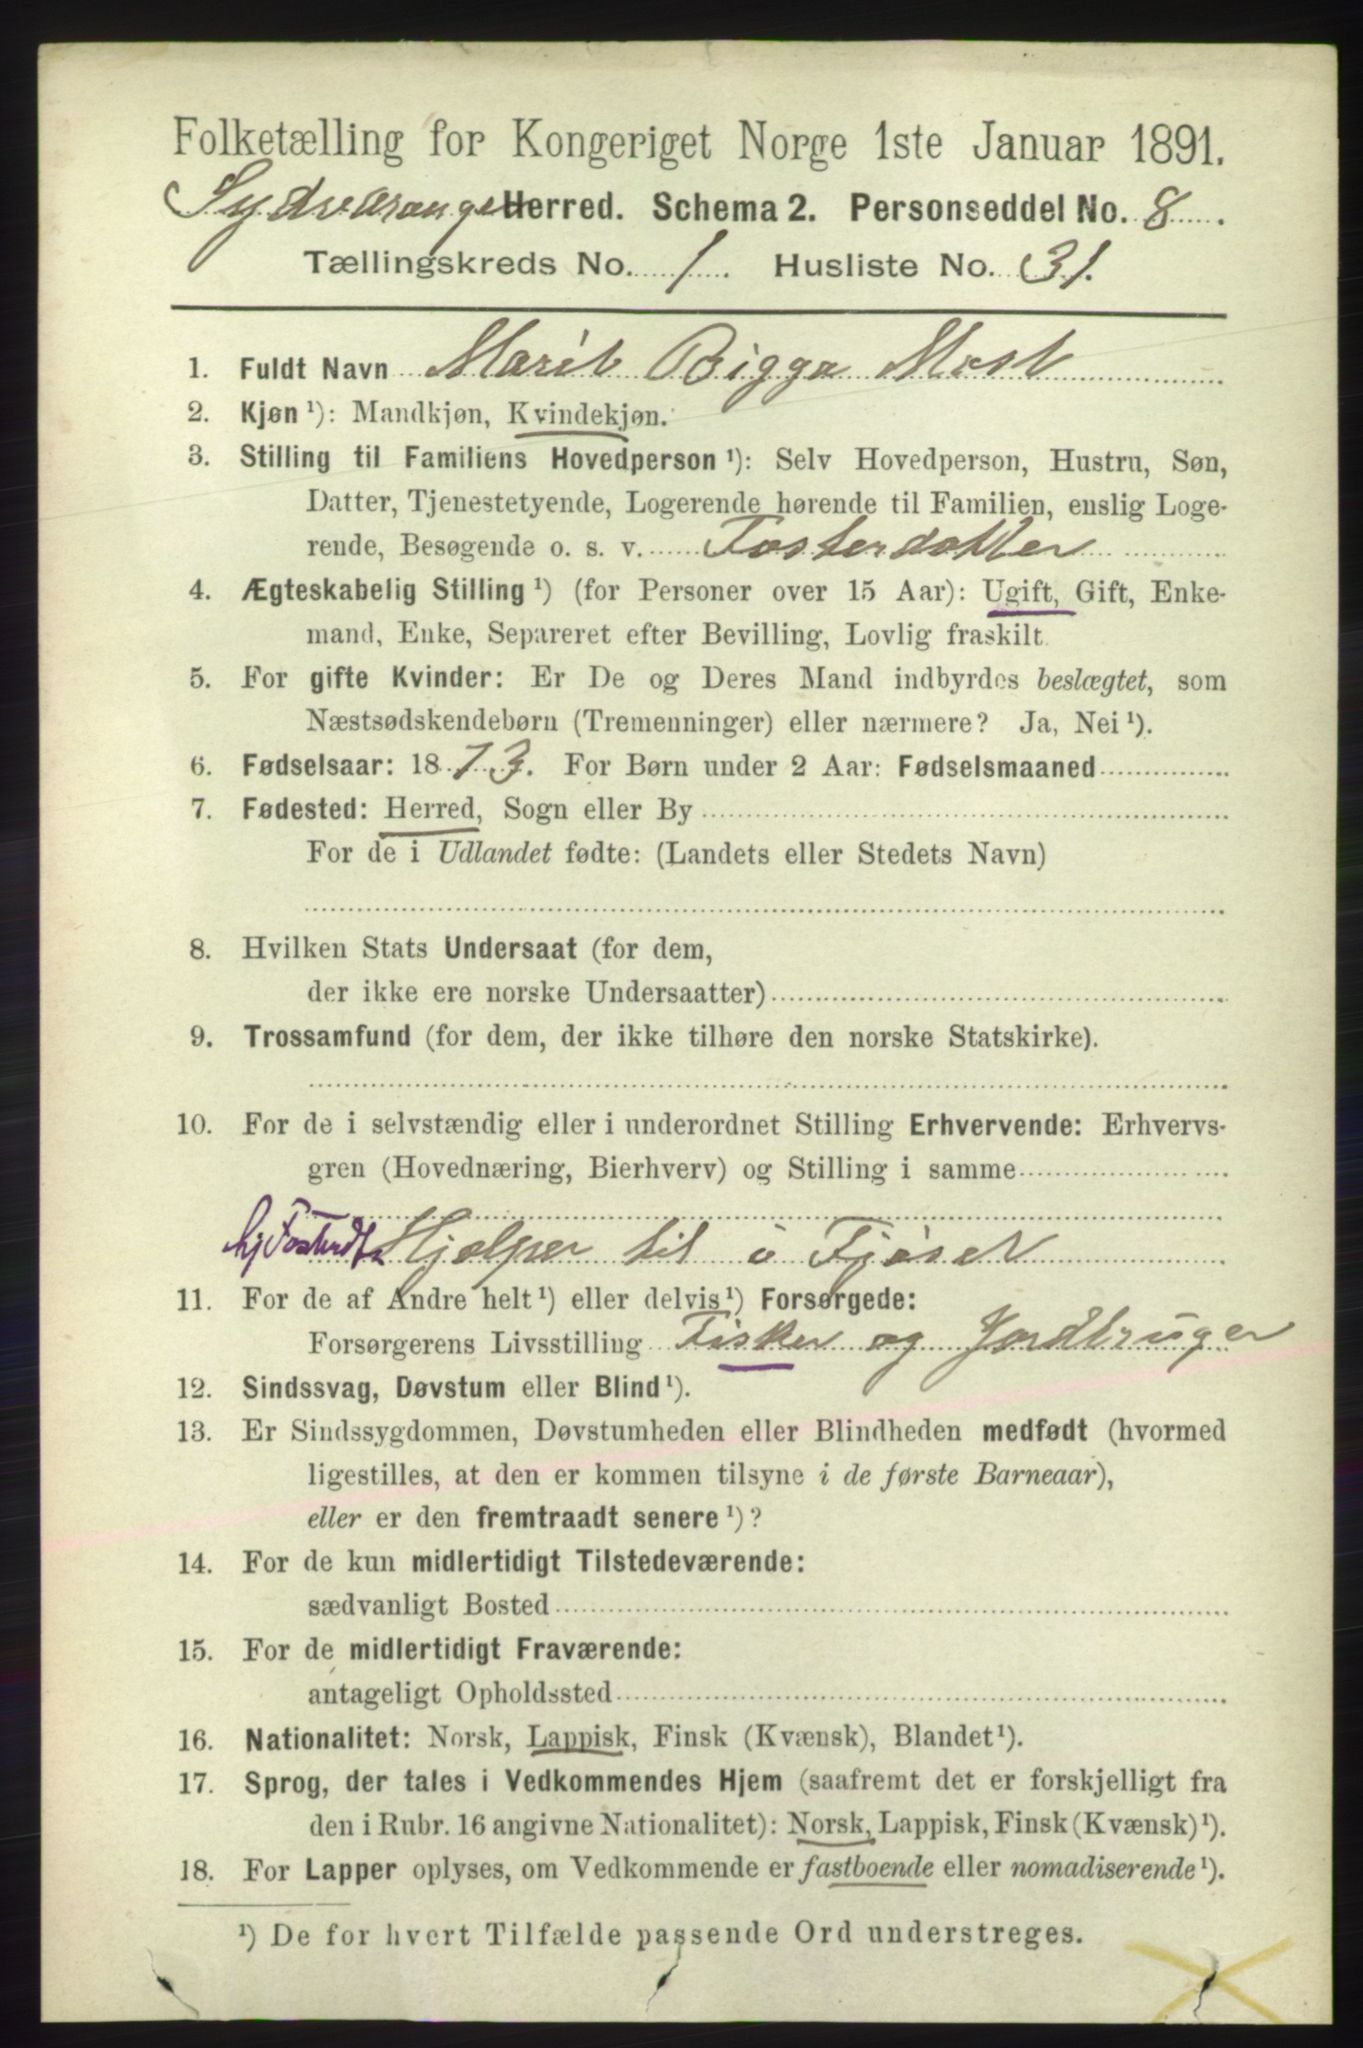 Folketælling for Kongeriget Norge 1ste Januar 1891.
Sydvaranger Herred. Schema 2. Personseddel No. 8.
Tællingskreds No. 1. Husliste No. 31.
1. Fuldt Navn Marit Bigga Mast
2. Kjøn ¹): Mandkjøn, Kvindekjøn.
3. Stilling til Familiens Hovedperson ¹): Selv Hovedperson, Hustru, Søn,
Datter, Tjenestetyende, Logerende hørende til Familien, enslig Loge-
rende, Besøgende o. s. v. Fosterdatter
4. Ægteskabelig Stilling ¹) (for Personer over 15 Aar): Ugift, Gift, Enke-
mand, Enke, Separeret efter Bevilling, Lovlig fraskilt
5. For gifte Kvinder: Er De og Deres Mand indbyrdes beslægtet, som
Næstsødskendebørn (Tremenninger) eller nærmere? Ja, Nei ¹).
6. Fødselsaar: 1873. For Børn under 2 Aar: Fødselsmaaned
7. Fødested: Herred, Sogn eller By
For de i Udlandet fødte: (Landets eller Stedets Navn)
8. Hvilken Stats Undersaat (for dem,
der ikke ere norske Undersaatter)
9. Trossamfund (for dem, der ikke tilhøre den norske Statskirke).
10. For de i selvstændig eller i underordnet Stilling Erhvervende: Erhvervs-
gren (Hovednæring, Bierhverv) og Stilling i samme
hj Fosterdt. Hjælper til i Fjøset
11. For de af Andre helt ¹) eller delvis ¹) Forsørgede:
Forsørgerens Livsstilling Fisker og Jordbruger
12. Sindssvag, Døvstum eller Blind ¹).
13. Er Sindssygdommen, Døvstumheden eller Blindheden medfødt (hvormed
ligestilles, at den er kommen tilsyne i de første Barneaar),
eller er den fremtraadt senere ¹)?
14. For de kun midlertidigt Tilstedeværende:
sædvanligt Bosted
15. For de midlertidigt Fraværende:
antageligt Opholdssted
16. Nationalitet: Norsk, Lappisk, Finsk (Kvænsk), Blandet ¹).
17. Sprog, der tales i Vedkommendes Hjem (saafremt det er forskjelligt fra
den i Rubr. 16 angivne Nationalitet): Norsk, Lappisk, Finsk (Kvænsk) ¹).
18. For Lapper oplyses, om Vedkommende er fastboende eller nomadiserende ¹).
¹) De for hvert Tilfælde passende Ord understreges.